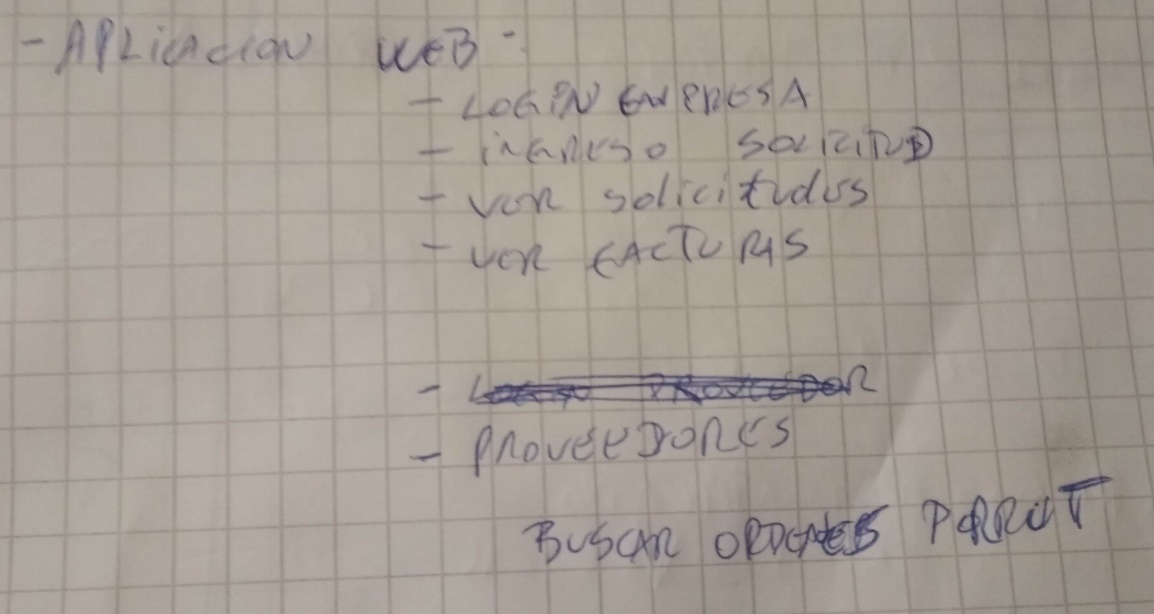 - APLICACION WEB -
- LOGIN EMPRESA
- INGRESO SOLICITUD
- VER solicitudes
- VER FACTURAS
- PROVEEDOR
- PROVEEDORES
BUSCAR ORDENES PORRUT